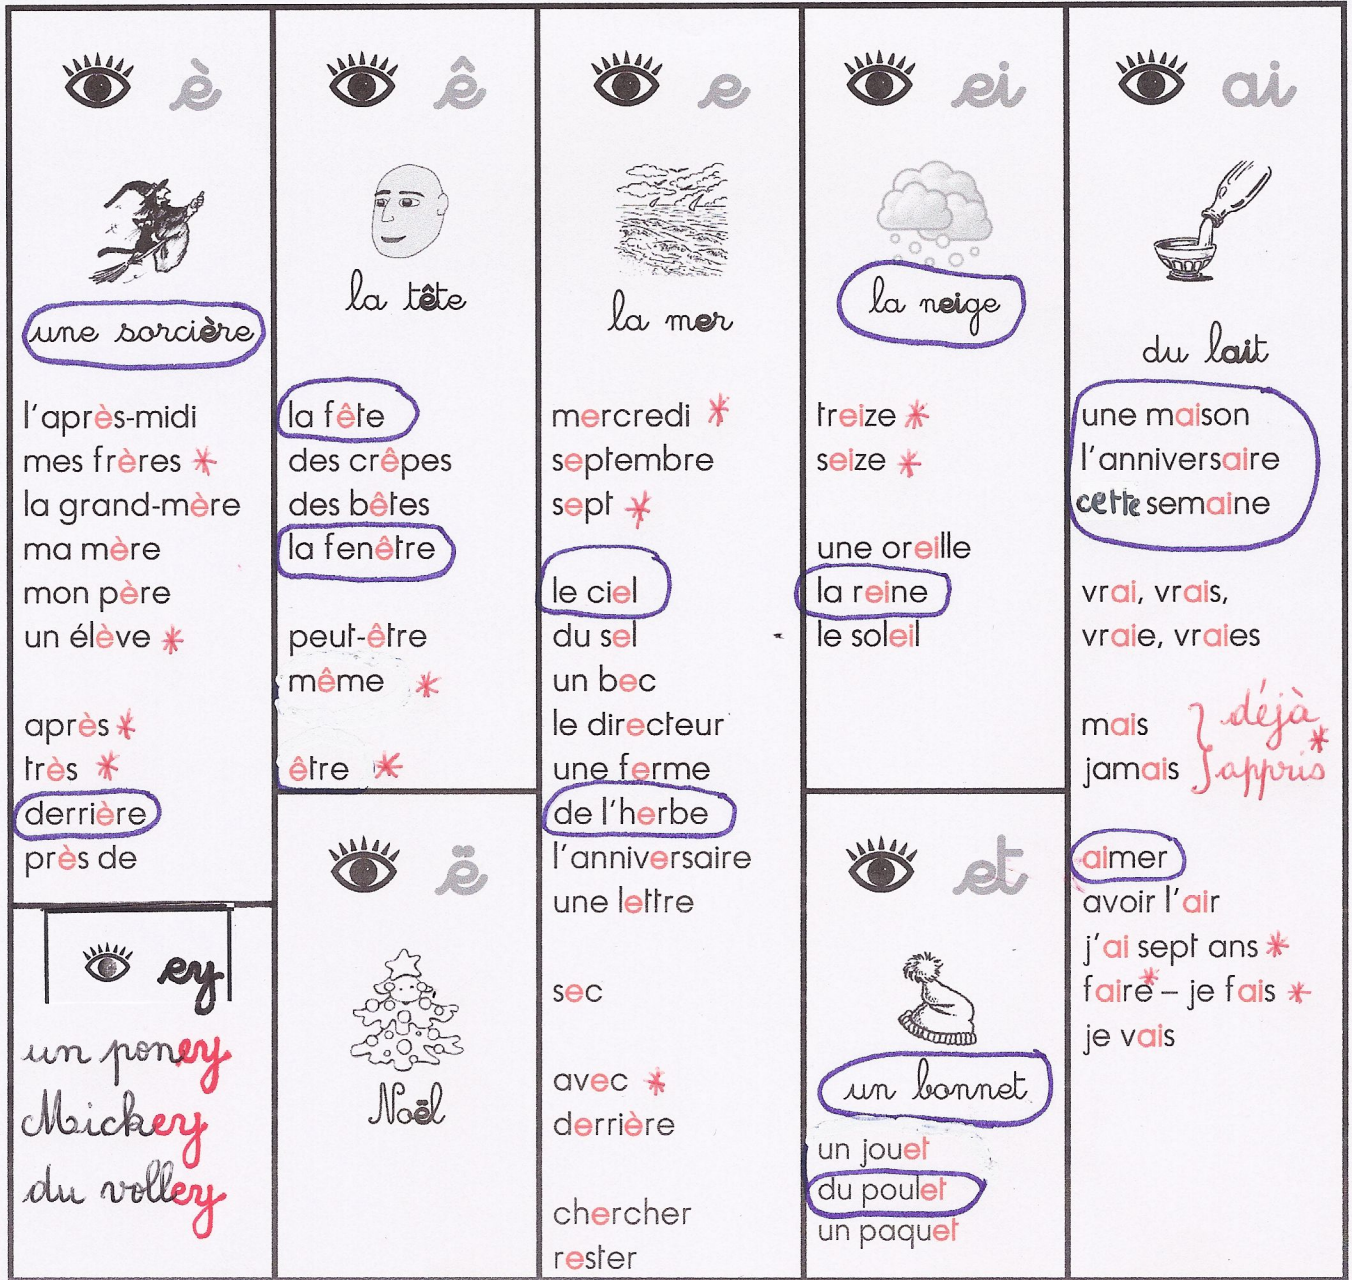 è
une sorcière
l'après-midi
mes frères *
la grand-mère
ma mère
mon père
un élève *
après *
très *
derrière
près de
ey
un poney
Mickey
du volley
ê
la tête
la fête
des crêpes
des bêtes
la fenêtre
peut-être
même *
être *
ë
Noël
e
la mer
mercredi *
septembre
sept *
le ciel
du sel
un bec
le directeur
une ferme
de l'herbe
l'anniversaire
une lettre
sec
avec *
derrière
chercher
rester
ei
la neige
treize *
seize *
une oreille
la reine
le soleil
et
un bonnet
un jouet
du poulet
un paquet
ai
du lait
une maison
l'anniversaire
cette semaine
vrai, vrais,
vraie, vraies
mais
jamais
déjà
appris *
aimer
avoir l'air
j'ai sept ans *
faire * – je fais *
je vais